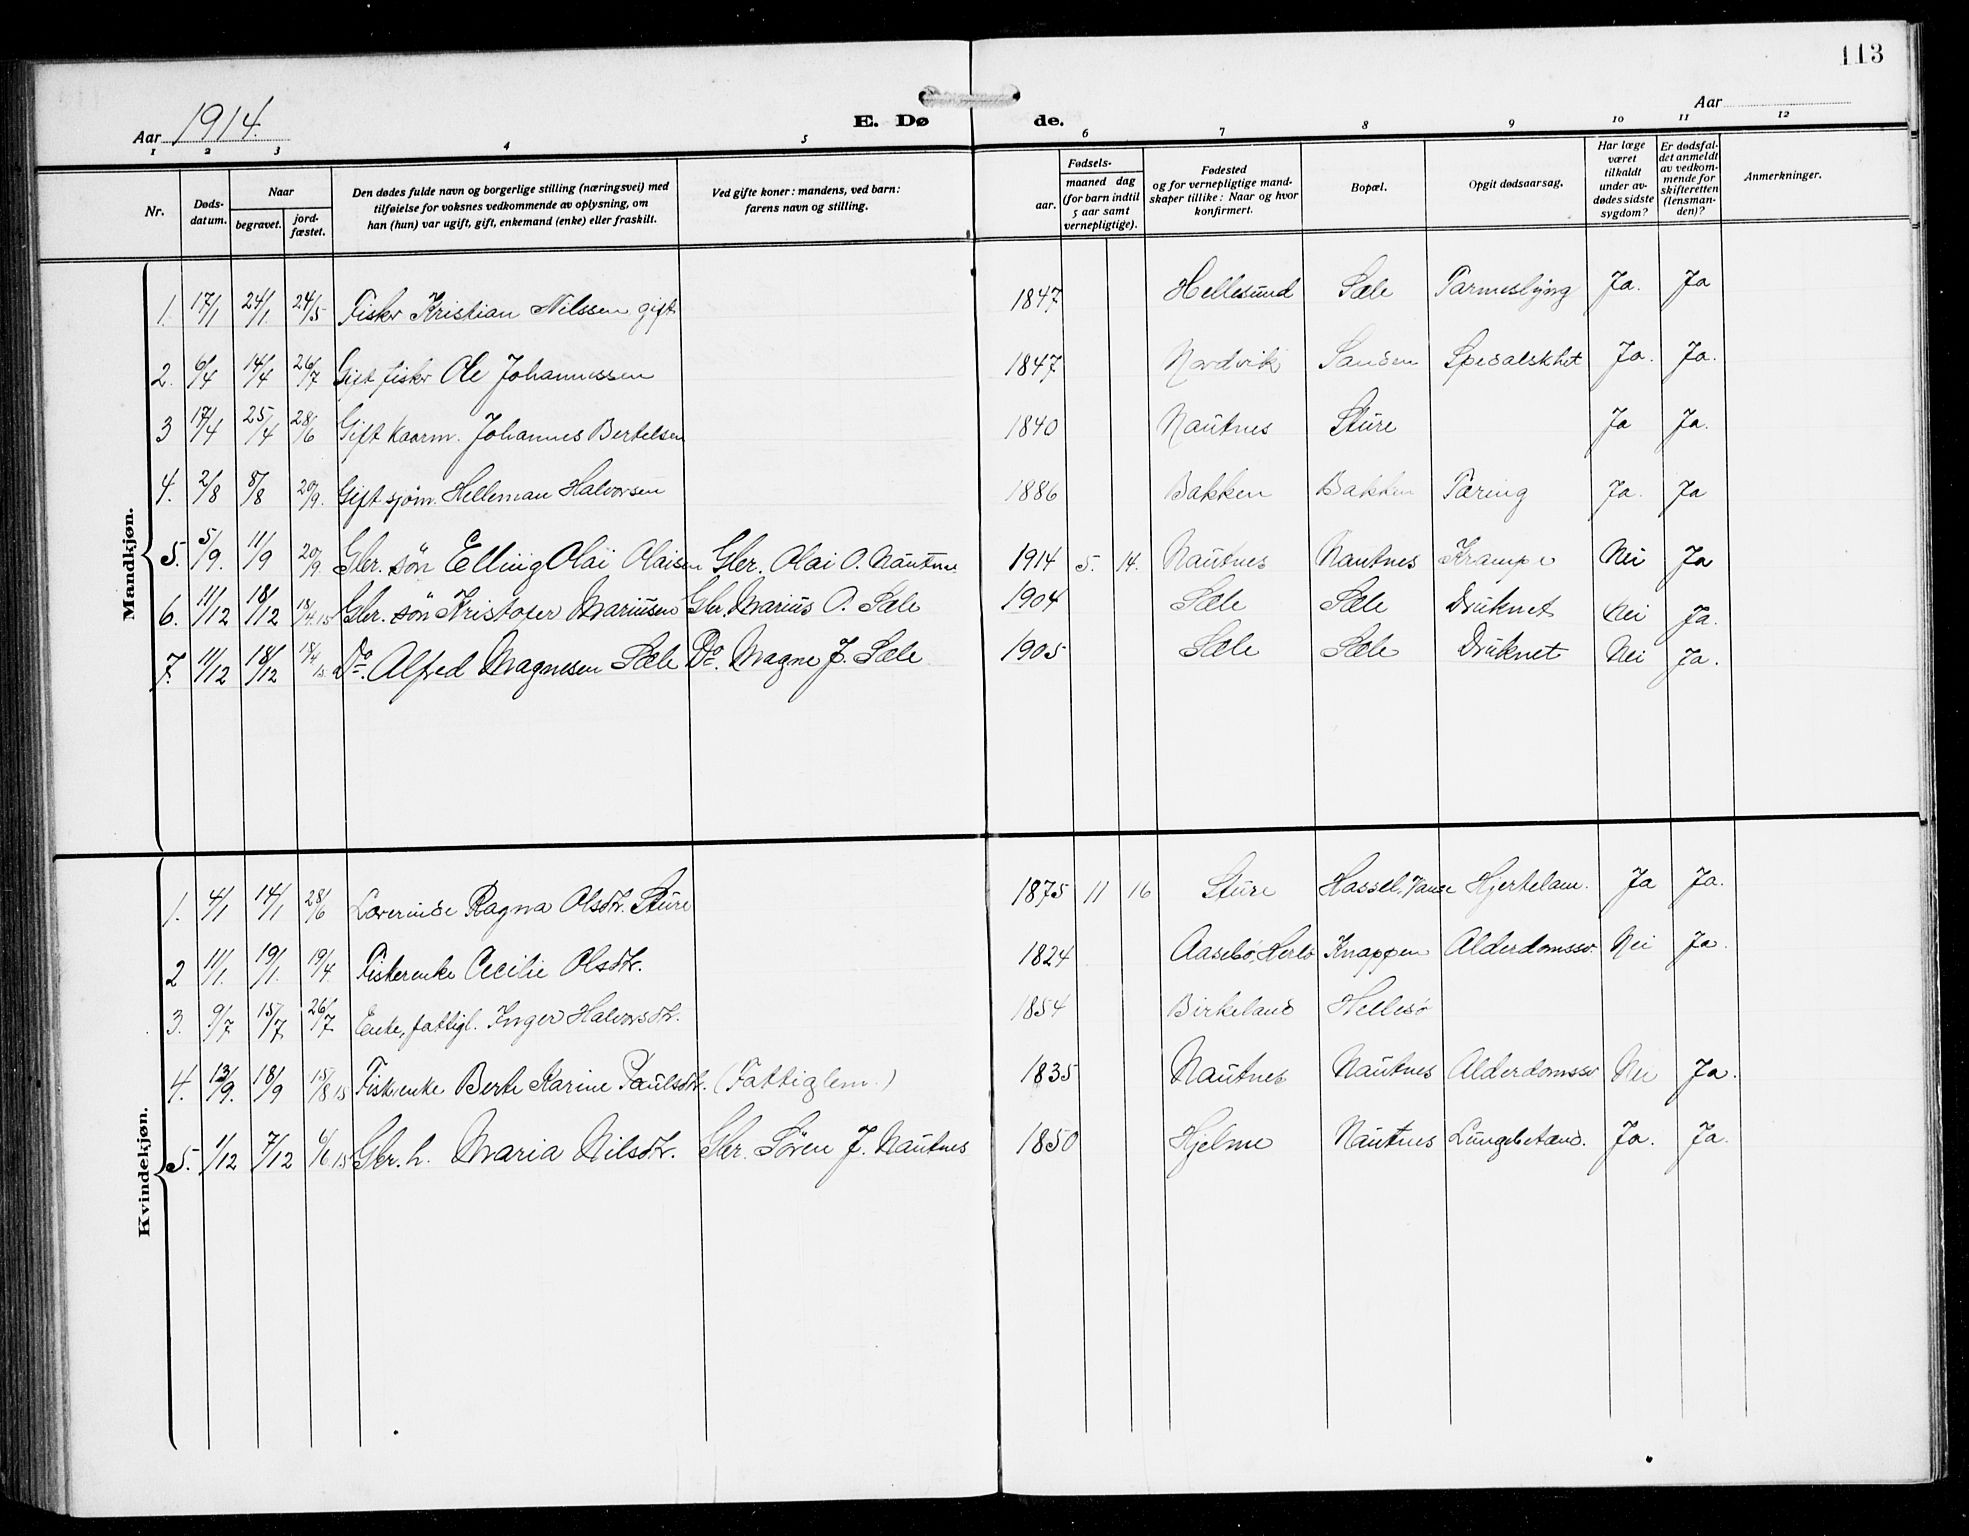 113
Aar 1914.
E. Døde.
Aar
1 2 3 4 5 6 7 8 9 10 11 12
Nr.
Døds-datum.
Naar
begravet.
jord-fæstet.
Den dødes fulde navn og borgerlige stilling (næringsvei) med
tilføielse for voksnes vedkommende av oplysning, om
han (hun) var ugift, gift, enkemand (enke) eller fraskilt.
Ved gifte koner: mandens, ved barn:
farens navn og stilling.
Fødsels-
aar.
maaned dag
(for barn indtil
5 aar samt
vernepligtige).
Fødested
og for vernepligtige mand-
skaper tillike: Naar og hvor
konfirmert.
Bopæl.
Opgit dødsaarsag.
Har læge
været
tilkaldt
under av-
dødes sidste
sygdom?
Er dødsfal-
det anmeldt
av vedkom-
mende for
skifteretten
(lensman-
den)?
Anmerkninger.
Mandkjøn.
1. 17/1 24/1. 24/5 Fisker Kristian Nilssen gift 1847 Hellesund Sæle Tarmeslyng Ja. Ja
2. 6/4 14/4 26/7 Gift fisker Ole Johannessen 1847 Nordvik Sanden Spedalskhet Ja. Ja.
3 17/4 25/4 28/6 Gift kaarm. Johannes Bertelsen 1840 Nautnes Sture Ja Ja.
4. 2/8 8/8 20/9. Gift sjøm. Helleman Halvorsen 1886 Bakken Bakken Tæring Ja. Ja
5. 5/9. 11/9 20/9. Gbr. søn Elling Olai Olaisen Gbr. Olai O. Nautnes 1914 5. 14. Nautnes Nautnes Krampe Nei Ja
6. 11/12 18/12 18/4 15 Gbr. søn Kristofer Mariusen Gbr. Marius O. Sæle 1904 Sæle Sæle Druknet Nei Ja.
7. 11/12 18/12 18/4 15 Do. Alfred Magnesen Sæle Do. Magne J. Sæle 1905 Sæle Sæle Druknet Nei Ja.
Kvindekjøn.
1. 4/1 14/1 28/6 Lærerinde Ragna Olsdtr. Sture 1875 11 16 Sture Hassel, Vanse Hjertelam. Ja Ja.
2 11/1. 19/1. 19/4. Fiskerenke Cecilie Olsdtr. 1824 Aasebø, Herlø Knappen Alderdomssv. Nei Ja.
3. 9/7 15/7 26/7. Enke, fattigl. Inger Halvorsdtr. 1854 Birkeland Hellesø
4. 13/9. 18/9 15/8 15 Fiskerenke Berte Karine Paulsdtr. (Fattiglem.) 1835 Nautnes Nautnes Alderdomssv Nei Ja.
5. 1/12 7/12 6/6 15 Gbr. h. Maria Nilsdtr. Gbr. Søren J. Nautnes 1850 Hjelme Nautnes Lungebetænd. Ja. Ja.